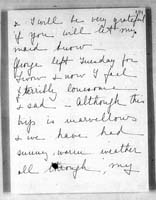 & I will be very grateful
if you will let my
maid know
George left Tuesday for
& now I feel
terribly lonesome
& sad - although this
trip is marvellous
& we have had
sunny, warm weather
all though, my